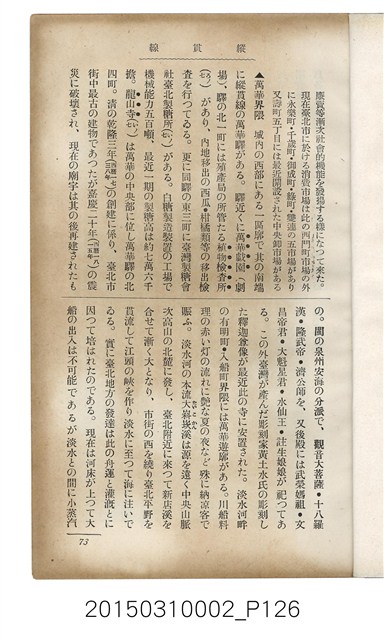 縱貫線
廛賣等漸次社會的機能を發揮する樣になつて來た。
現在臺北市に於ける消費市場は此の西門町市場の外
に永樂町・千歲町・御成町・綠町・雙連の五市場があり
又壽町五丁目には最近開設された中央卸市場がある
▲萬華界隈　城內の西部にある一區廓で其の南端
に縱貫線の萬華驛がある。驛近くに萬華戲園（劇
場）、驛の北一町には殖產局の所管たる植物檢查所
があり、內地移出の西瓜・柑橘類等の移出檢
查を行つてゐる。更に同驛の東三町に臺灣製糖會
社臺北製糖所がある。白糖製造裝置の工場で
機械能力五百噸、最近一期の製糖高は約七萬六千
擔。龍山寺は萬華の中央部に位し萬華驛の北
四町。清の乾隆三年の創建に係り、臺北市
街中最古の建物であつたが嘉慶二十年の震
災に破壞され、現在の廟宇は其の後再建されたも
の。閩の泉州安海の分派で、觀音大菩薩・十八羅
漢・隆武帝・濟公師を、又後殿には武榮媽祖・文
昌帝君・大魁星君・水仙王・註生娘娘が祀つてあ
る。この外臺灣が產んだ彫刻家黃土水氏の彫刻し
た釋迦尊像が最近此の寺に安置された。淡水河畔
の有明町・入船町界隈には萬華遊廓がある。川船料
理の赤い灯の流れに艷な夏の夜など殊に納凉客で
賑ふ。淡水河の本流大嵙崁溪は源を遠く中央山脈
次高山の北麓に發し、臺北附近に來つて新店溪を
合せて漸く大となり、市街の西を繞り臺北平野を
貫流して江頭の峽を作り淡水に至つて海に注いで
ゐる。實に臺北地方の發達は此の舟運と灌漑とに
因つて培はれたのである。現在は河床が上つて大
船の出入は不可能であるが淡水との間に小蒸汽
73
20150310002_P126